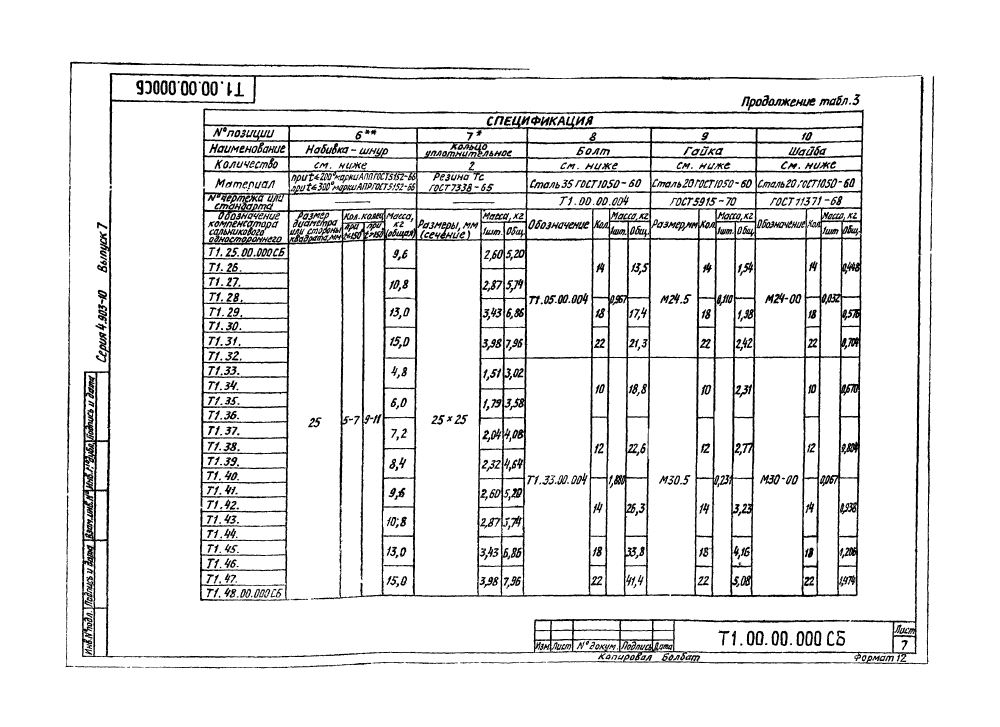 Т1.00.00.000СБ
Продолжение табл.3
СПЕЦИФИКАЦИЯ
№ позиции 6** 7* 8 9 10
Наименование Набивка-шнур Кольцо уплотнительное Болт Гайка Шайба
Количество см. ниже 2 см. ниже см. ниже см. ниже
Материал при t≤200° марки АПП ГОСТ 5152-66 при t≤300° марки АПР ГОСТ 5152-66 Резина Тс ГОСТ 7338-65 Сталь 35 ГОСТ 1050-60 Сталь 20 ГОСТ 1050-60 Сталь 20 ГОСТ 1050-60
№ чертежа или стандарта — — Т1.00.00.004 ГОСТ 5915-70 ГОСТ 11371-68
Обозначение компенсатора сальникового одностороннего Размер диаметра или стороны квадрата, мм Кол. колец при при Масса, кг (общая) Размеры, мм (сечение) Масса, кг 1шт. Общ. Обозначение Кол. Масса, кг 1шт. Общ. Размер, мм Кол. Масса, кг 1шт. Общ. Обозначение Кол. Масса, кг 1шт. Общ.
Т1.25.00.000СБ 9,6 2,60 5,20
Т1.26. 14 13,5 14 1,54 14 0,448
Т1.27. 10,8 2,87 5,74
Т1.28. Т1.05.00.004 0,967 М24.5 0,110 М24-00 0,032
Т1.29. 13,0 3,43 6,86 18 17,4 18 1,98 18 0,576
Т1.30.
Т1.31. 15,0 3,98 7,96 22 21,3 22 2,42 22 0,704
Т1.32.
Т1.33. 4,8 1,51 3,02
Т1.34. 10 18,8 10 2,31 10 0,670
Т1.35. 6,0 1,79 3,58
Т1.36. 25 5-7 9-11 25×25
Т1.37. 7,2 2,04 4,08
Т1.38. 12 22,6 12 2,77 12 0,804
Т1.39. 8,4 2,32 4,64
Т1.40. Т1.33.00.004 1,880 М30.5 0,231 М30-00 0,067
Т1.41. 9,6 2,60 5,20
Т1.42. 14 26,3 14 3,23 14 0,938
Т1.43. 10,8 2,87 5,74
Т1.44.
Т1.45. 13,0 3,43 6,86 18 33,8 18 4,16 18 1,206
Т1.46.
Т1.47. 15,0 3,98 7,96 22 41,4 22 5,08 22 1,474
Т1.48.00.000СБ
Серия 4.903-10 Выпуск 7
Инв.№подл. Подпись и дата Взам.инв.№ Инв.№дубл. Подпись и дата
Изм. Лист № докум. Подпись Дата
Т1.00.00.000 СБ
Лист
7
Копировал Болбат Формат 12